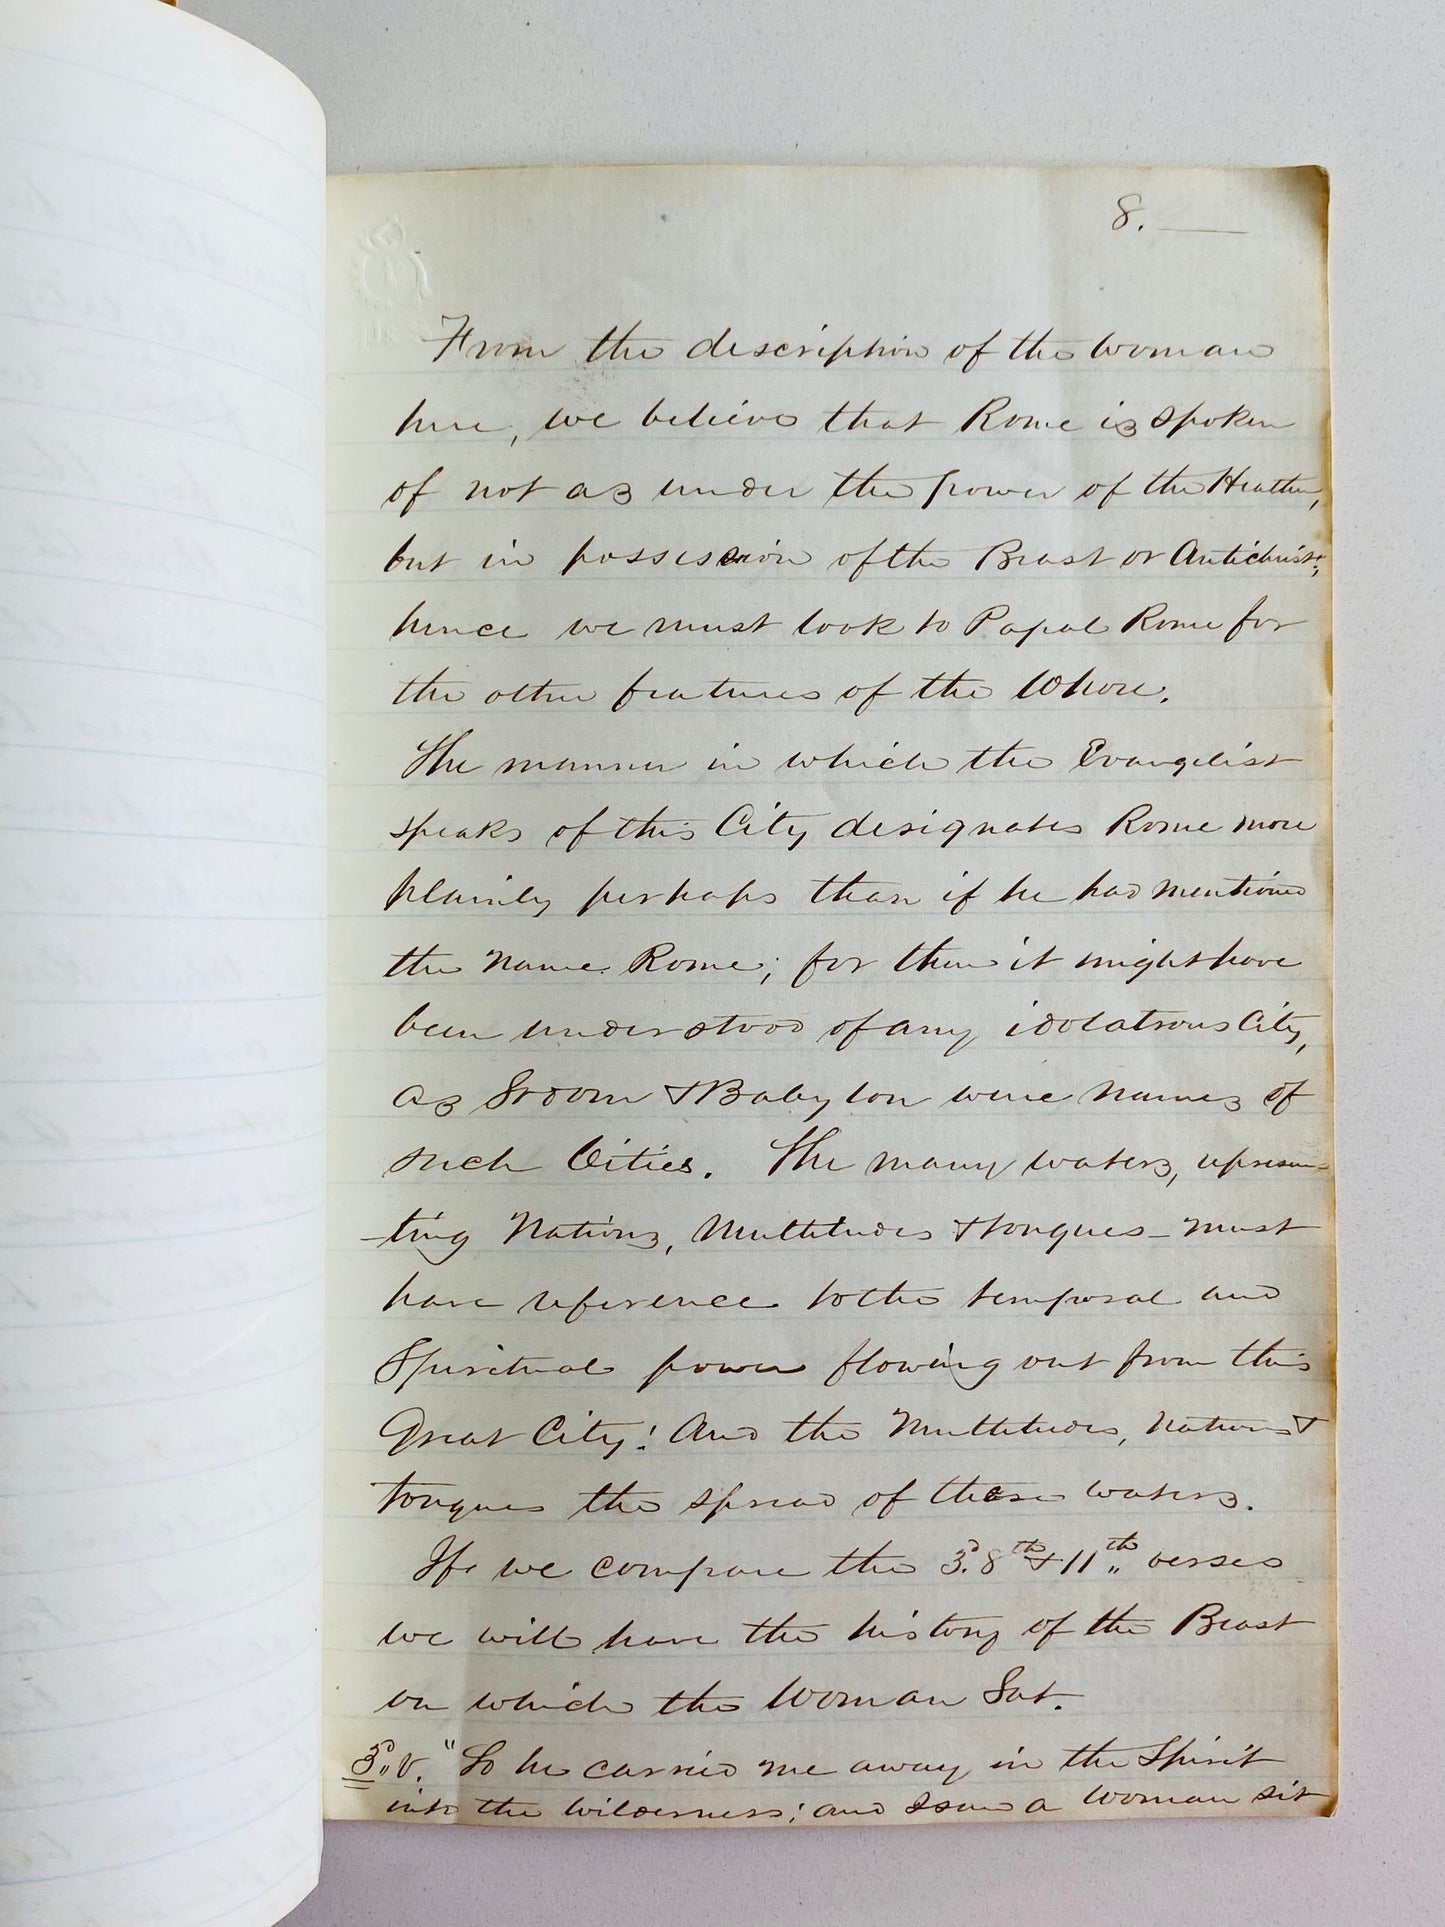 8.
From the description of the Woman
here, we believe that Rome is spoken
of not as under the power of the Heathen,
but in possession of the Beast or Antichrist;
hence we must look to Papal Rome for
the other features of the Whore.
The manner in which the Evangelist
speaks of this City designates Rome more
plainly perhaps than if he had mentioned
the name Rome; for then it might have
been understood of any idolatrous City,
as Sodom & Babylon were names of
such Cities. The many waters, represen-
-ting Nations, Multitudes & tongues - must
have reference to the temporal and
Spiritual power flowing out from this
Great City! And the Multitudes, Nations &
tongues the spread of these waters.
If we compare the 3.d 8th & 11th verses
we will have the history of the Beast
on which the Woman Sat.
3.d V. "So he carried me away in the Spirit
into the wilderness; and I saw a Woman sit